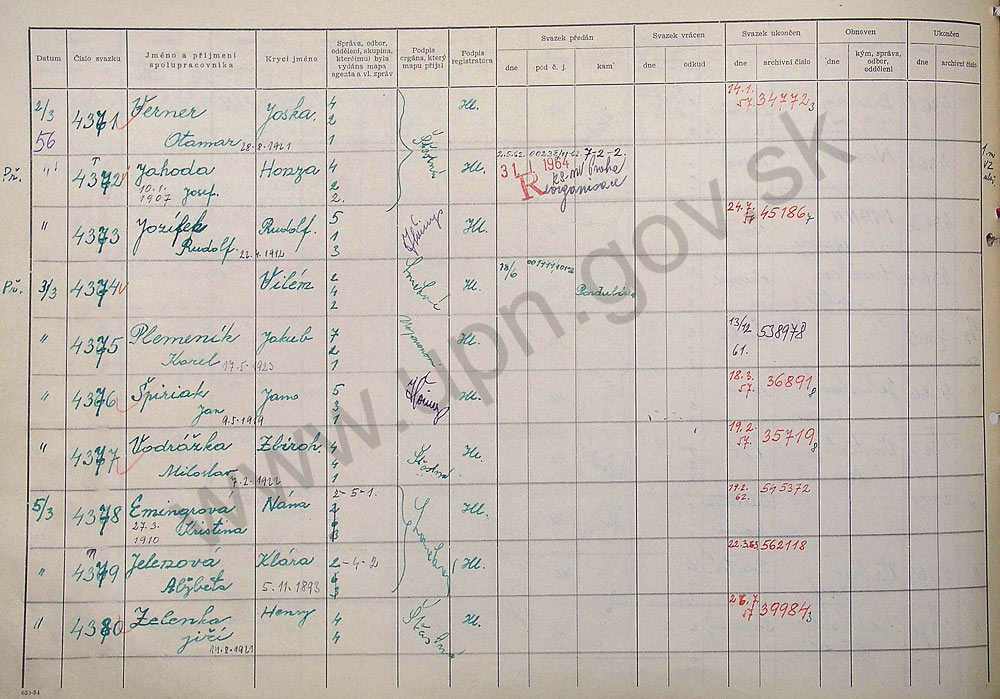 Datum
Číslo svazku
Jméno a příjmení spolupracovníka
Krycí jméno
Správa, odbor, oddělení, skupina, které(mu) byla vydána mapa agenta a vl. zpráv
Podpis orgána, který mapu přijal
Podpis registratora
Svazek předán
dne
pod č. j.
kam
Svazek vrácen
dne
odkud
Svazek ukončen
dne
archivní číslo
Obnoven
dne
kým, správa, odbor, oddělení
Ukončen
dne
archivní číslo
2/3 4371 Verner Joska. 4 Hl. 14.1. 34772 3
56 Otamar 28-8-1921 2 57.
1
Př. " 4372 Jahoda Honza 4 Hl. 7-2-2.
10.1. Josef. 2 3 1. I 1964 Praha
1907 2. Reorganisace
" 4373 Jozífek Rudolf. 5 Hl. 24.7. 45186 7
Rudolf. 22.4.1912 1 57.
3
Př. 3/3 4374 Vilém 2 Hl. 18/6
4 Pardubice
2
" 4375 Plemeník Jakub 7 Hl. 13/12 538978
Karel 17-5-1923 2 61.
1
" 4376 Špiriak Jano 5 Hl. 18.3. 36891 8
Jan 3 57.
1
" 4377 Vodrážka Zbiroh. 4 Šťastný Hl. 19.2. 35719 8
Miloslav 7-2-1922 4 57.
1
5/3 4378 Emingrová Nana 2-5-1. Hl. 545372
27.3. Kristina 2 62.
1910
3
" 4379 Jelenová Klára 2-4-2 Hl. 22.3.63 562118
Alžběta 5.11.1893 6
3
" 4380 Zelenka Henry 4 Šťastný Hl. 26.7. 39984 3
Jiří 4 57
11-8-1921 4
www.upn.gov.sk